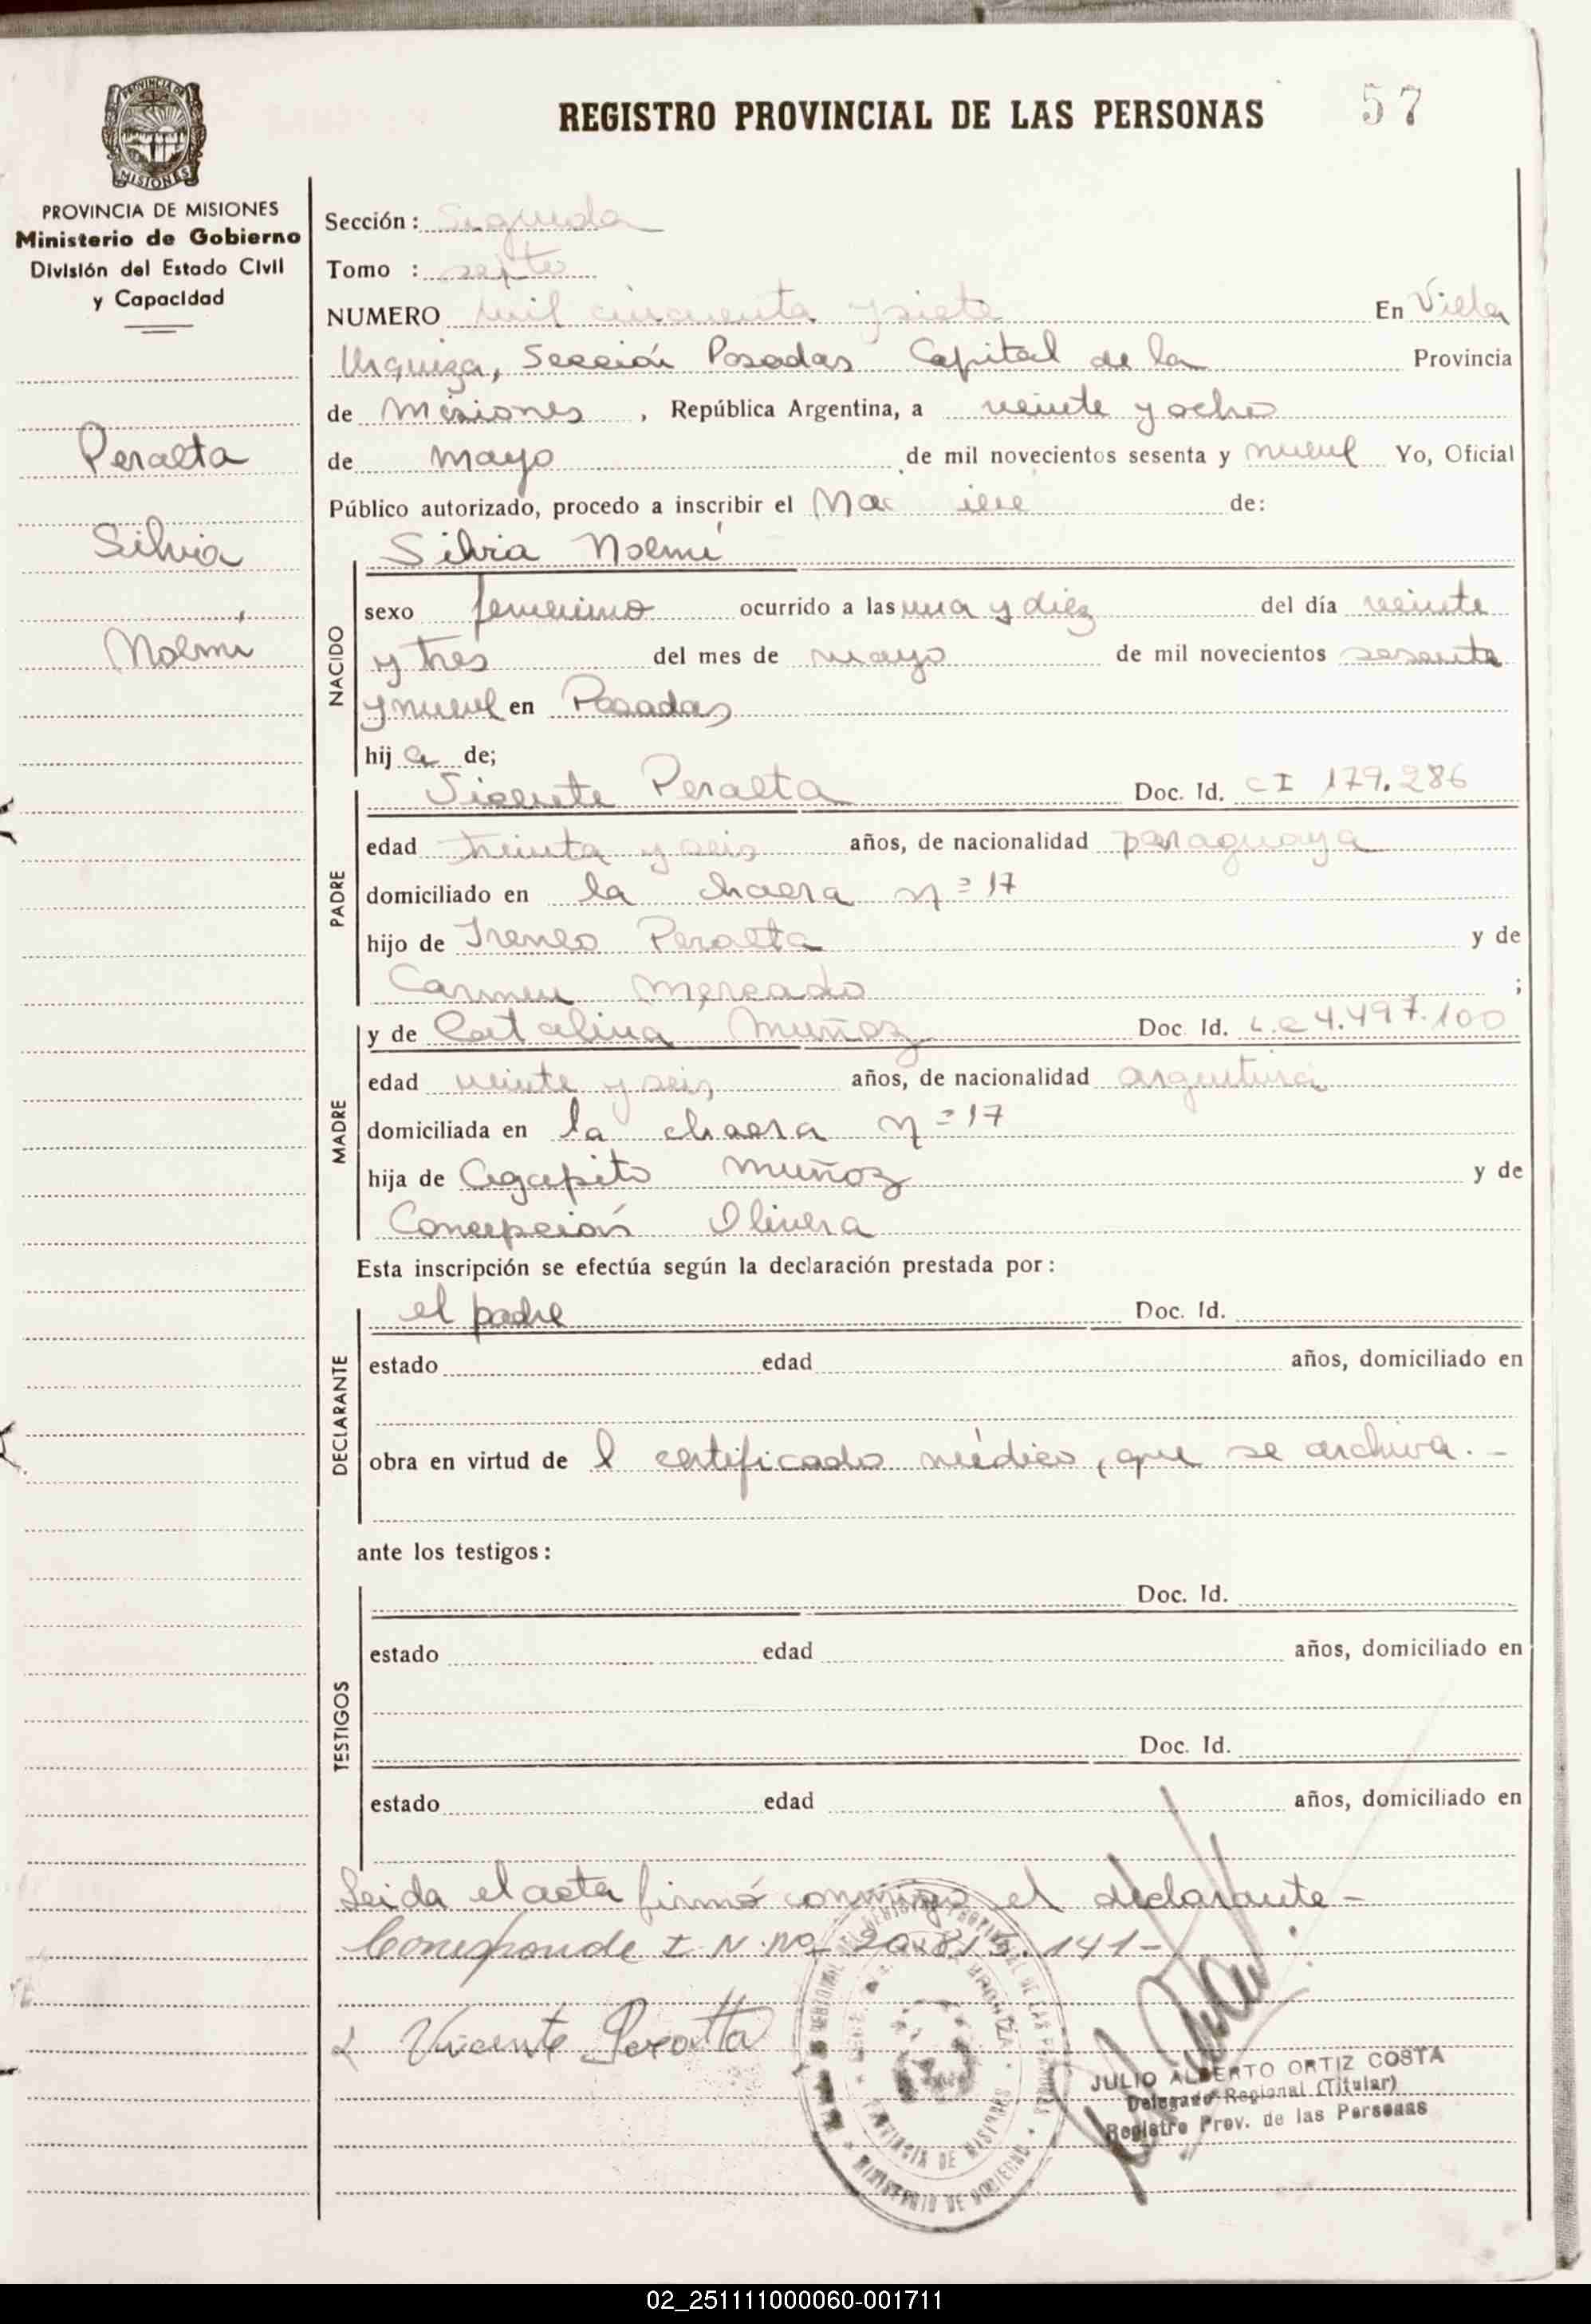 REGISTRO PROVINCIAL DE LAS PERSONAS 57
PROVINCIA DE MISIONES
MISIONES
PROVINCIA DE MISIONES
Ministerio de Gobierno
División del Estado Civil
y Capacidad
Peralta
Silvia
Noemí
Sección : Segunda
Tomo :
NUMERO mil cincuenta y siete En Villa
Urquiza, Sección Posadas Capital de la Provincia
de Misiones , República Argentina, a veinte y ocho
de mayo de mil novecientos sesenta y nueve Yo, Oficial
Público autorizado, procedo a inscribir el de:
Silvia Noemí
NACIDO
sexo femenino ocurrido a las una y diez del día veinte
y tres del mes de mayo de mil novecientos sesenta
y nueve en Posadas
hij a de;
PADRE
Vicente Peralta Doc. Id. CI 179.286
edad treinta y seis años, de nacionalidad paraguaya
domiciliado en la chacra nº 17
hijo de Ireneo Peralta y de
Carmen Mereado ;
MADRE
y de Catalina Muñoz Doc. Id. L.C 4.497.100
edad veinte y seis años, de nacionalidad argentina
domiciliada en la chacra nº 17
hija de Agapito Muñoz y de
Concepción Olivera
Esta inscripción se efectúa según la declaración prestada por :
DECLARANTE
el padre Doc. Id.
estado edad años, domiciliado en
obra en virtud de l certificado médico, que se archiva. -
ante los testigos :
TESTIGOS
Doc. Id.
estado edad años, domiciliado en
Doc. Id.
estado edad años, domiciliado en
Leida el acta firmó conmigo el declarante -
Corresponde I. N. nº 20.815.141-
Vicente Peralta
JULIO ALBERTO ORTIZ COSTA
Delegado Regional (Titular)
Registro Prov. de las Personas
PROVINCIA DE MISIONES
MINISTERIO DE GOBIERNO
02_251111000060-001711